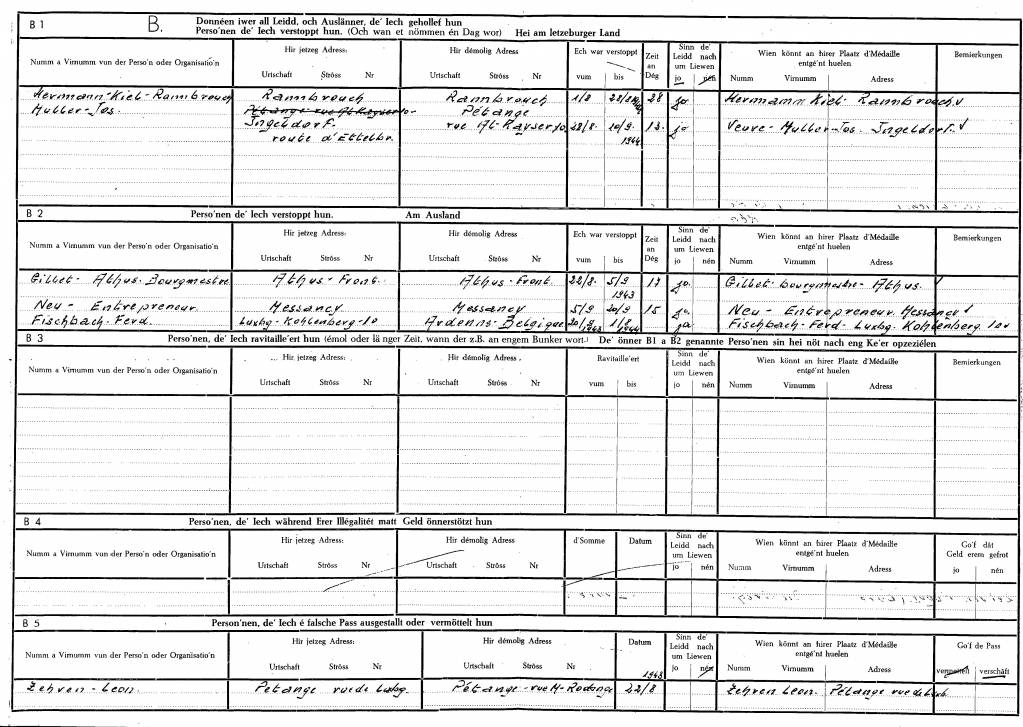 B 1 B. Donnéen iwer all Leidd, och Auslänner, de' Iech gehollef hun
Perso'nen de' Iech verstoppt hun. (Och wan et nömmen én Dag wor) Hei am letzeburger Land
Numm a Virnumm vun der Perso'n oder Organisatio'n
Hir jetzeg Adress:
Urtschaft Ströss Nr
Hir démolig Adress
Urtschaft Ströss Nr
Ech war verstoppt
vum bis
Zeit an Dég
Sinn de' Leidd nach um Liewen
jo nén
Wien könnt an hirer Plaatz d'Médaille entgé'nt huelen
Numm Virnumm Adress
Bemierkungen
Hermann-Kiel-Rambrouch Rambrouch Rambrouch 1/8 28 jo Hermann Kiel- Rambrouch
Muller-Jos. Pétange
Ingeldorf. rue Al-Kayser 28/8. 10/9. 13. jo Veuve-Muller-Jos. Ingeldorf.
route d'Ettelbr. 1944
B 2 Perso'nen de' Iech verstoppt hun. Am Ausland
Numm a Virnumm vun der Perso'n oder Organisatio'n
Hir jetzeg Adress:
Urtschaft Ströss Nr
Hir démolig Adress
Urtschaft Ströss Nr
Ech war verstoppt
vum bis
Zeit an Dég
Sinn de' Leidd nach um Liewen
jo nén
Wien könnt an hirer Plaatz d'Médaille entgé'nt huelen
Numm Virnumm Adress
Bemierkungen
Gilbet- Athus- Bourgmestre Athus- Front. Athus- Front. 22/8. 5/9 jo. Gilbet- bourgmestre- Athus.
1943
Neu - Entrepreneur. Messancy Messancy 5/9 20/9 15 jo. Neu - Entrepreneur. Messancy
Fischbach-Ferd. Luxbg-Kohlenberg-10 Ardenns-Belgique 20/9 1943 1/8 1944 ja Fischbach-Ferd- Luxbg. Kohlenberg 10
B 3 Perso'nen, de' Iech ravitaille'ert hun (émol oder länger Zeit, wann der z.B. an engem Bunker wort.) De' önner B1 a B2 genannte Perso'nen sin hei nöt nach eng Ke'er opzezielén
Numm a Virnumm vun der Perso'n oder Organisatio'n
Hir jetzeg Adress:
Urtschaft Ströss Nr
Hir démolig Adress
Urtschaft Ströss Nr
Ravitaille'ert
vum bis
Sinn de' Leidd nach um Liewen
jo nén
Wien könnt an hirer Plaatz d'Médaille entgé'nt huelen
Numm Virnumm Adress
Bemierkungen
B 4 Perso'nen, de' Iech während Erer Illégalitét matt Geld önnerstötzt hun
Numm a Virnumm vun der Perso'n oder Organisatio'n
Hir jetzeg Adress:
Urtschaft Ströss Nr
Hir démolig Adress
Urtschaft Ströss Nr
d'Somme
Datum
Sinn de' Leidd nach um Liewen
jo nén
Wien könnt an hirer Plaatz d'Médaille entgé'nt huelen
Numm Virnumm Adress
Go'f dât Geld erem gefrot
jo nén
B 5 Person'nen, de' Iech é falsche Pass ausgestallt oder vermöttelt hun
Numm a Virnumm vun der Perso'n oder Organisatio'n
Hir jetzeg Adress:
Urtschaft Ströss Nr
Hir démolig Adress
Urtschaft Ströss Nr
Datum
1943
Sinn de' Leidd nach um Liewen
jo nén
Wien könnt an hirer Plaatz d'Médaille entgé'nt huelen
Numm Virnumm Adress
Go'f de Pass
verschâft
Zehren - Leon. Pétange rue de Luxbg. Pétange - rue M- Rodange 22/8 Zehren Leon. Pétange rue de Luxb.